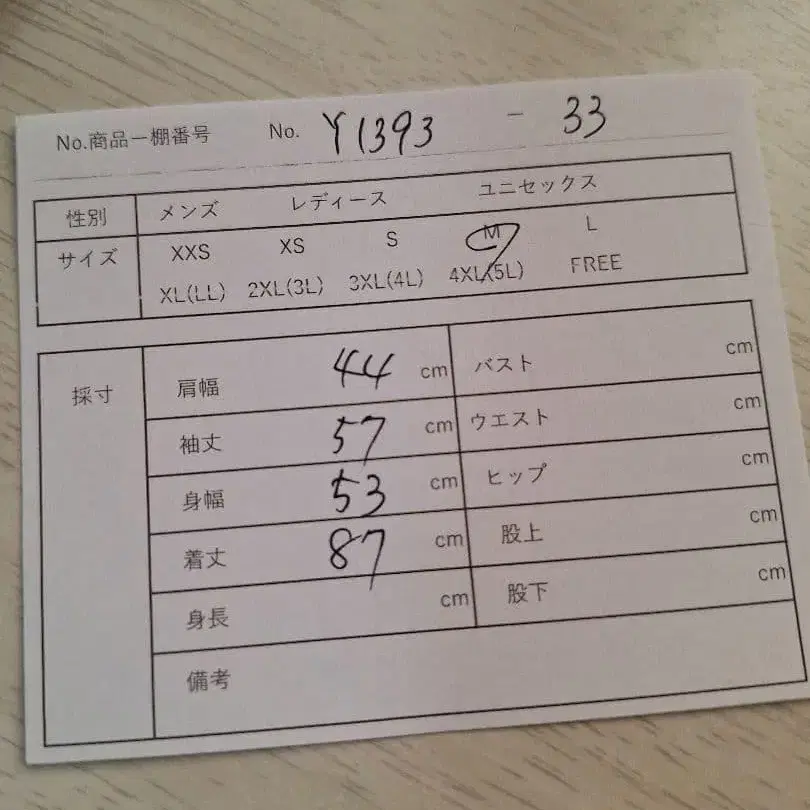 No.商品ー棚番号 No. Y1393 - 33
性別 メンズ レディース ユニセックス
サイズ XXS XS S M L
XL(LL) 2XL(3L) 3XL(4L) 4XL(5L) FREE
採寸 肩幅 44 cm バスト cm
袖丈 57 cm ウエスト cm
身幅 53 cm ヒップ cm
着丈 87 cm 股上 cm
身長 cm 股下 cm
備考